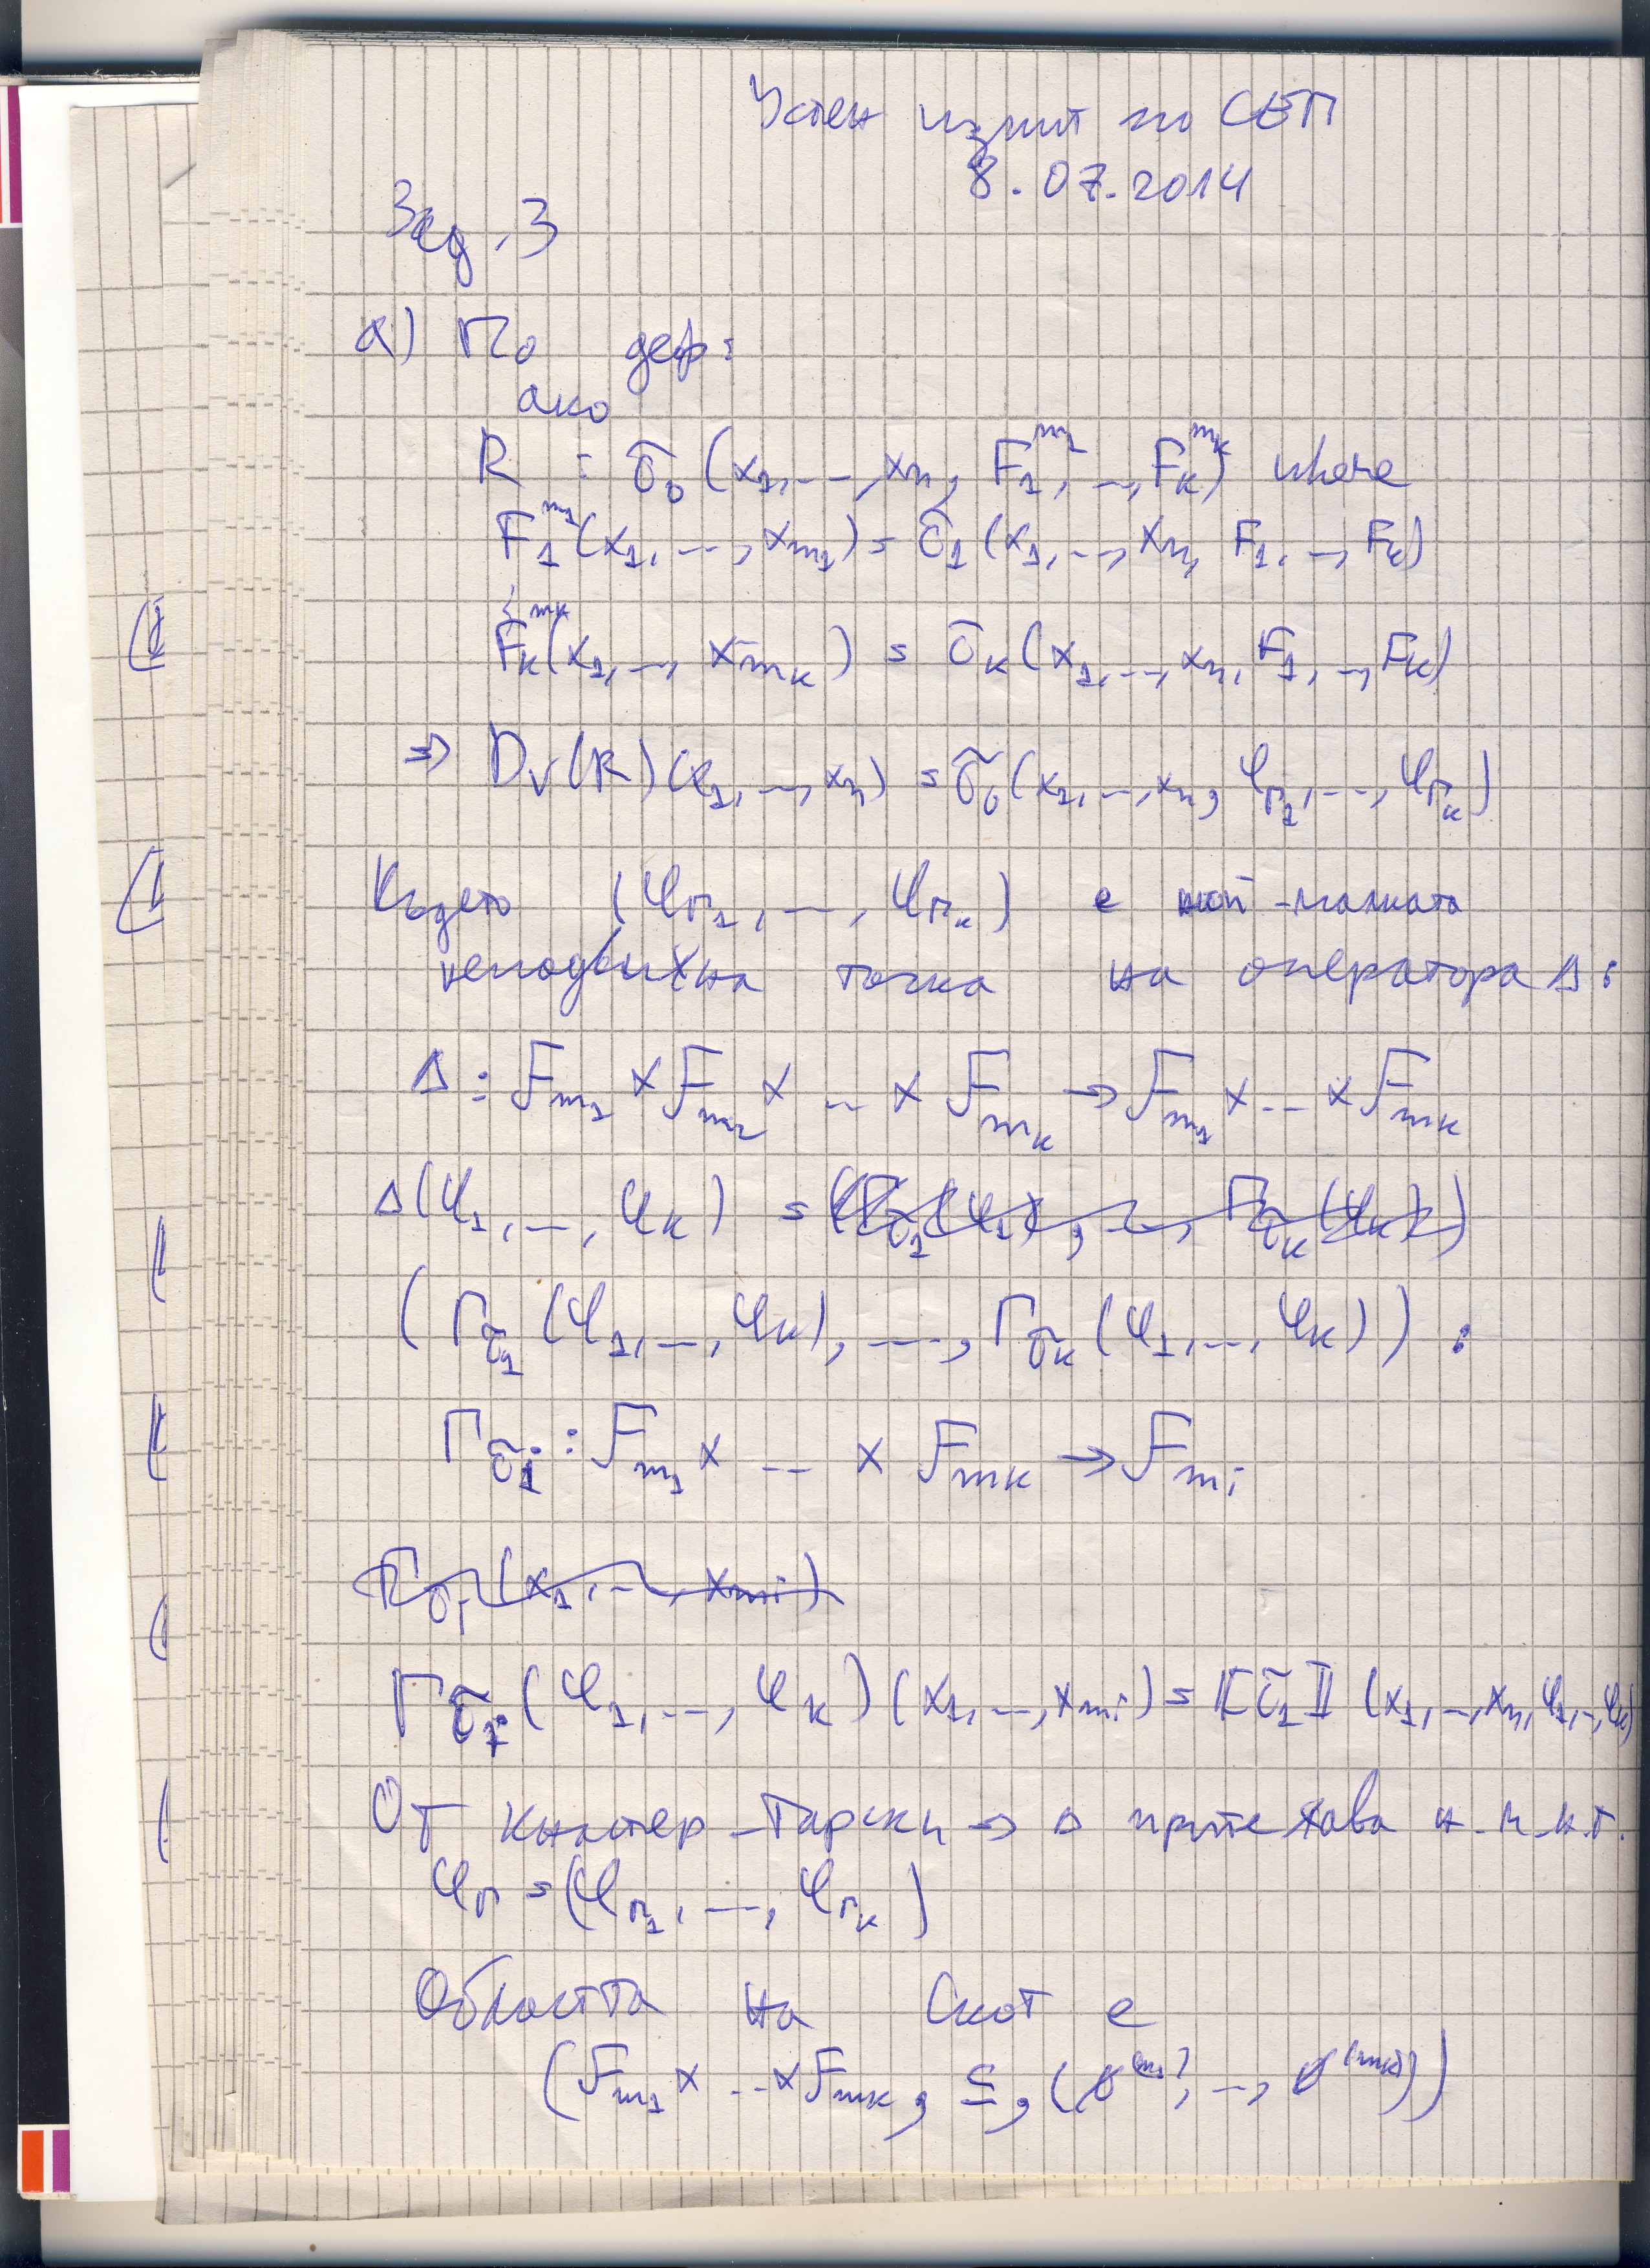 Устен изпит по СЕП
8.07.2014
Зад. 3
а) По деф:
ако
R : τ₀(x₁,...,xₙ, F₁^m₁,...,Fₖ^mₖ) where
F₁^m₁(x₁,...,x_m₁) = τ₁(x₁,...,xₙ, F₁,...,Fₖ)
⋮
Fₖ^mₖ(x₁,...,x_mₖ) = τₖ(x₁,...,xₙ, F₁,...,Fₖ)
⇒ D_V(R)(x₁,...,xₙ) = τ₀(x₁,...,xₙ, φ_Γ₁,...,φ_Γₖ)
Където (φ_Γ₁,...,φ_Γₖ) е най-малката
неподвижна точка на оператора Δ:
Δ: F_m₁ × F_m₂ × ... × F_mₖ → F_m₁ × ... × F_mₖ
Δ(φ₁,...,φₖ) =
(Γ_τ₁(φ₁,...,φₖ),...,Γ_τₖ(φ₁,...,φₖ)) :
Γ_τᵢ : F_m₁ × ... × F_mₖ → F_mᵢ
Γ_τᵢ(φ₁,...,φₖ)(x₁,...,x_mᵢ) = ⟦τ₁⟧(x₁,...,xₙ,φ₁,...,φₖ)
От Кнастер-Тарски → Δ притежава н.м.н.т.
φ_Γ = (φ_Γ₁,...,φ_Γₖ)
Областта на Скот е
(F_m₁ × ... × F_mₖ, ⊆, (∅^(m₁),...,∅^(mₖ)))